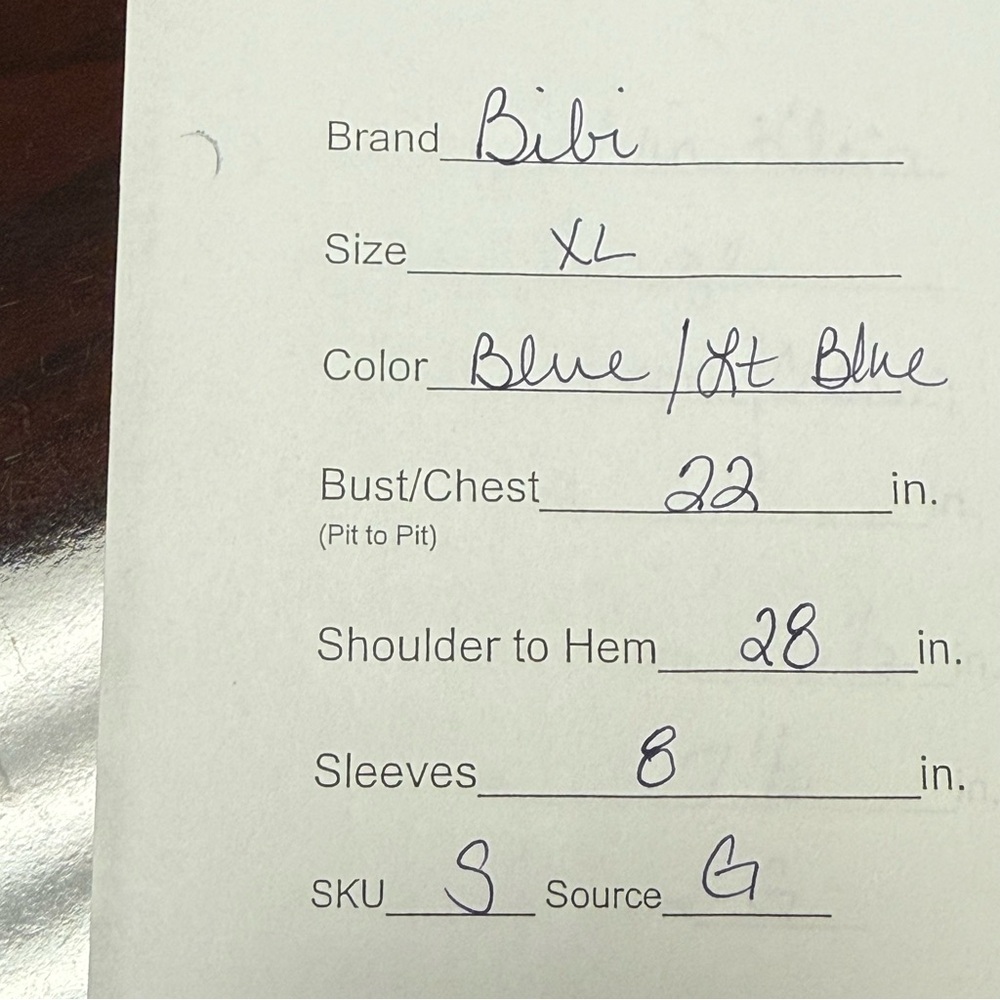 Brand Bibi
Size XL
Color Blue / Lt Blue
Bust/Chest 22 in.
(Pit to Pit)
Shoulder to Hem 28 in.
Sleeves 8 in.
SKU S Source G